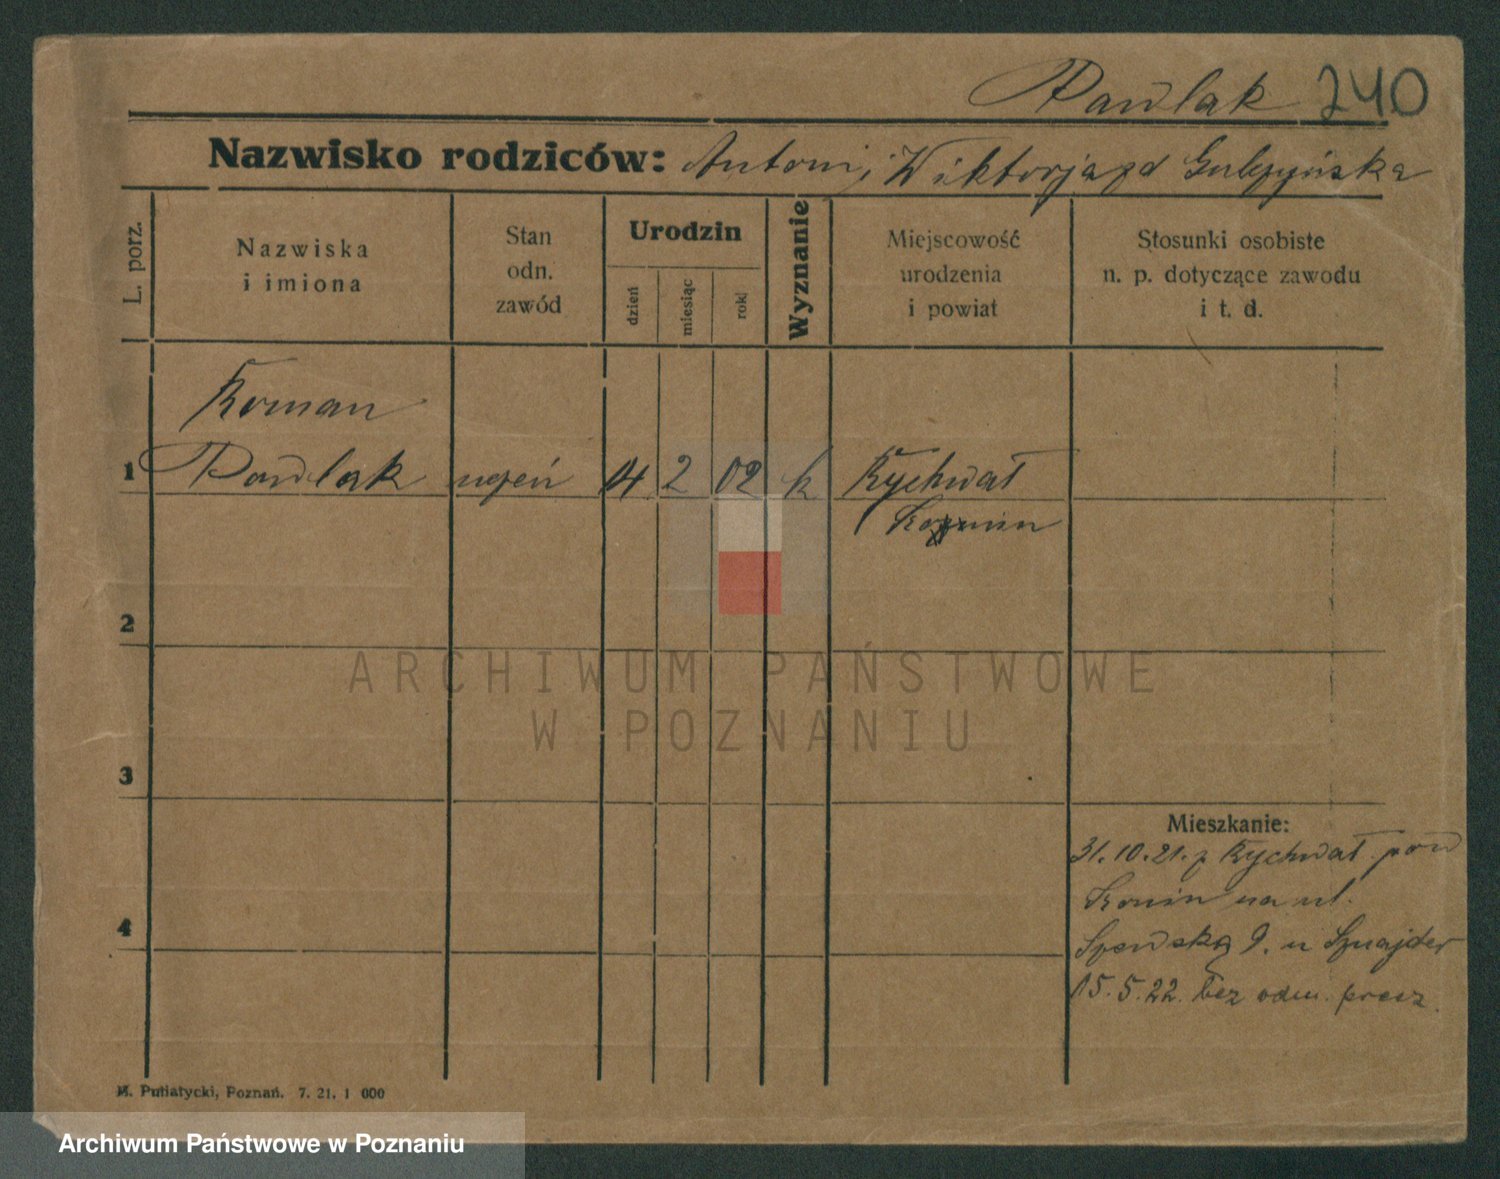 Pawlak 240
Nazwisko rodziców: Antoni i Wiktorja zd
L. porz.
Nazwiska
i imiona
Stan
odn.
zawód
Urodzin
dzień
miesiąc
rok
Wyznanie
Miejscowość
urodzenia
i powiat
Stosunki osobiste
n. p. dotyczące zawodu
i t. d.
Roman
1 Pawlak uczeń 2 02 k Rychwał
Konin
2
ARCHIWUM PAŃSTWOWE
W POZNANIU
3
Mieszkanie:
31.10.21. z Rychwał pow
Konin na ul.
4
Szewską 9. u Sznajder
15.5.22. bez odm. przez
M. Putiatycki, Poznań. 7. 21. 1 000
Archiwum Państwowe w Poznaniu